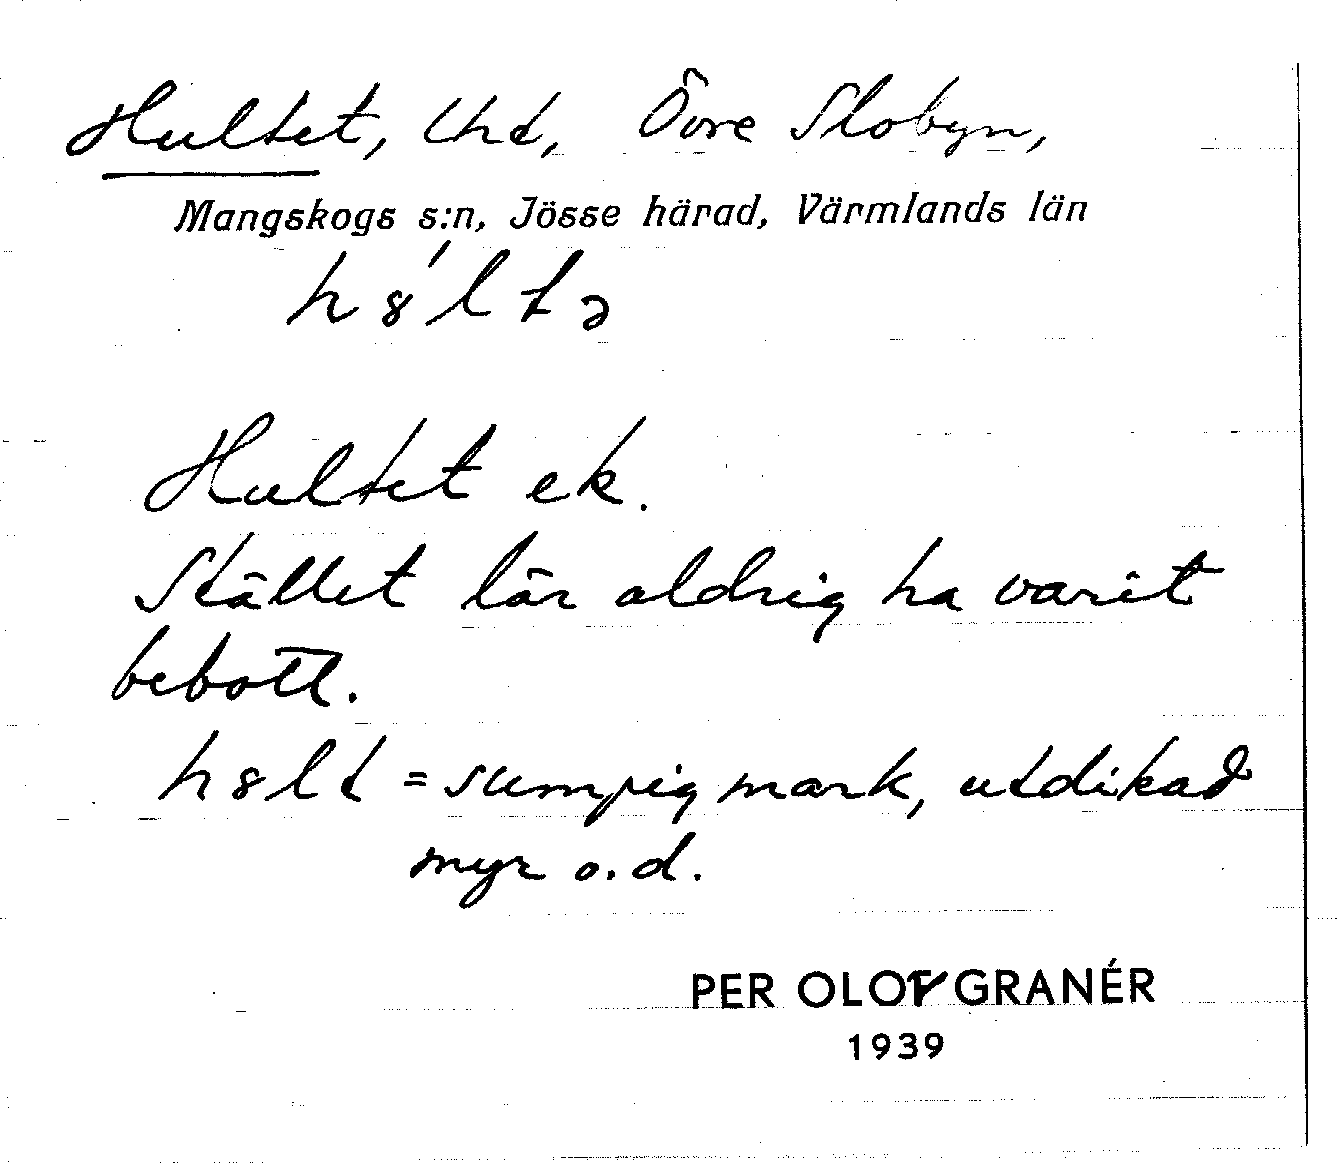 Hultet, Lht, Övre Slobyn,
Mangskogs s:n, Jösse härad, Värmlands län
h8́ltə
Hultet ek.
Stället lär aldrig ha varit
bebott.
h8lt = sumpig mark, utdikad
myr o.d.
PER OLOV GRANÉR
1939